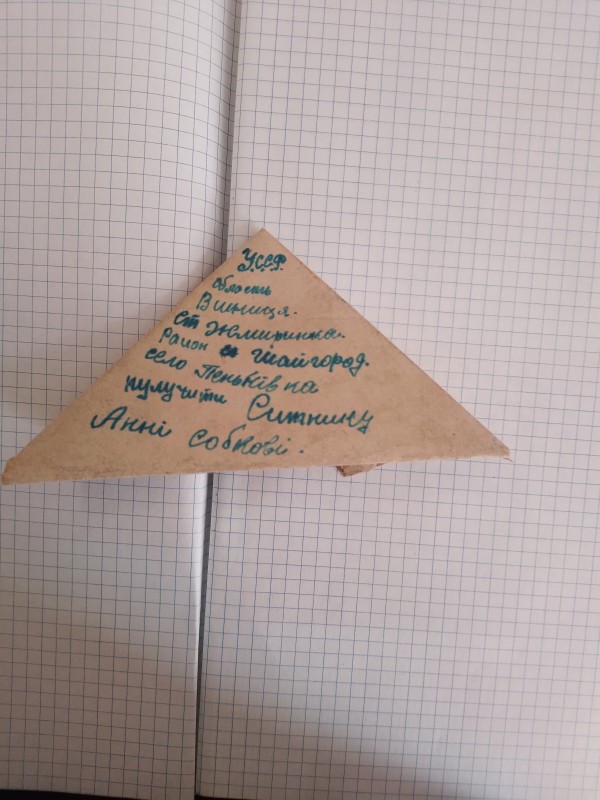 УССР
область
Вінниця.
ст Жмиринка.
Район Шайгород.
село Пеньківка
пулучити Ситнику
Анні собкові.